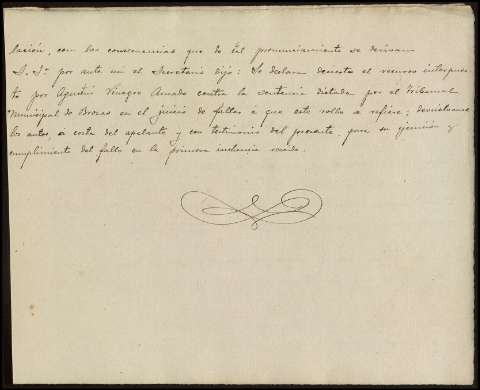 lación, con las consecuencias que de tal pronunciamiento se derivan
S. Sª por ante mi el Secretario dijo: Se declara desierto el recurso interpues-
to por Agustin Vinagre Amado contra la sentencia dictada por el Tribunal
Municipal de Brozas en el juicio de faltas á que este rollo se refiere; devuelvanse
los autos, á costa del apelante y con testimonio del presente, para su ejecución y
cumplimiento del fallo en la primera instancia recaido.